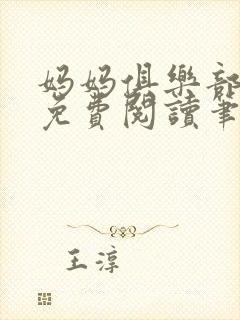 媽媽俱樂部
免費閱讀筆
王淳